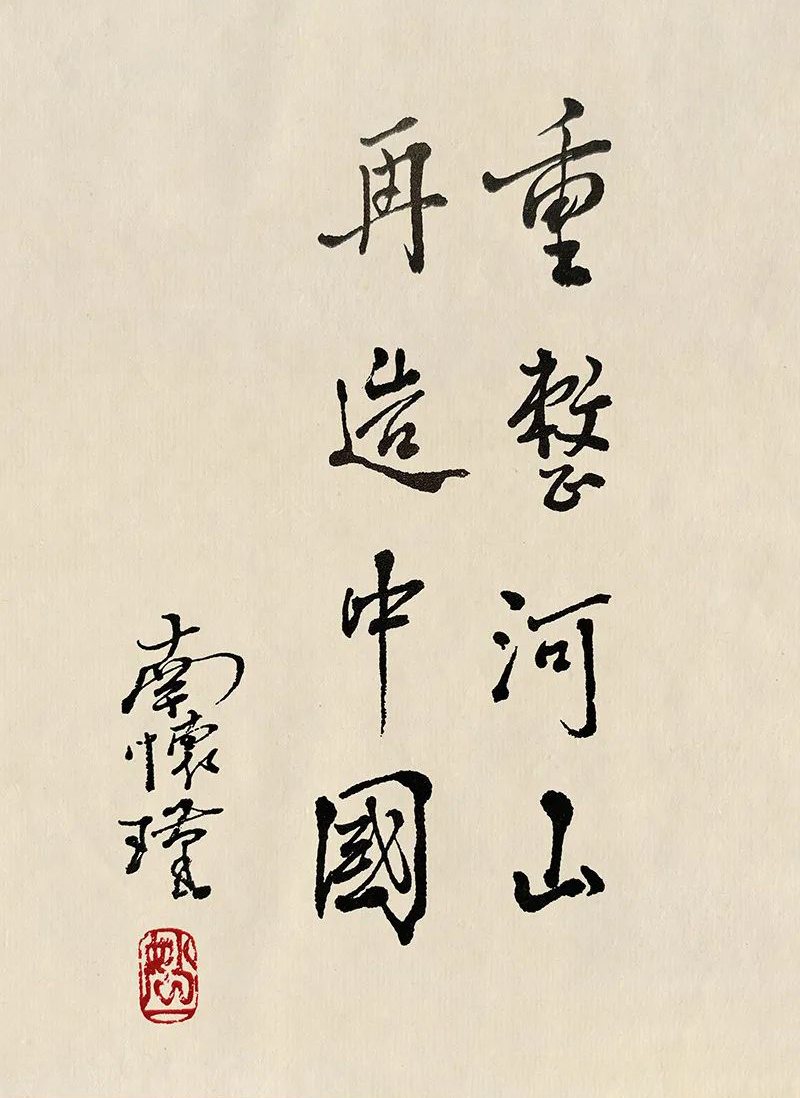 重整河山
再造中國
南懷瑾